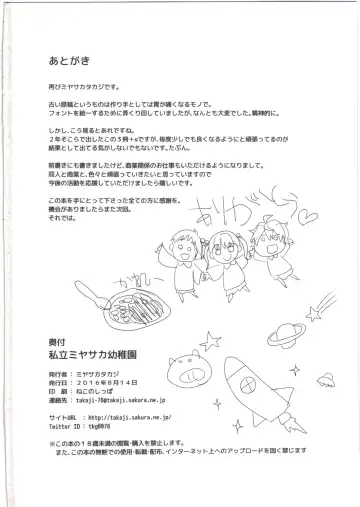 あとがき
再びミヤサカタカジです。
古い原稿というものは作り手としては胃が痛くなるモノで。
フォントを統一するために弄くり回していましたが、なんとも大変でした。精神的に。
しかし、こう見るとあれですね。
2年そこらで出したこの3冊+αですが、毎度少しでも良くなるようにと頑張ってるのが
結果として出てる気がしないでもないです。たぶん。
前書きにも書きましたけど、商業関係のお仕事もいただけるようになりまして。
同人と商業と、色々と頑張っていきたいと思っていますので
今後の活動を応援していただけましたら嬉しいです。
この本を手にとって下さった全ての方に感謝を。
機会がありましたらまた次回。
それでは。
ありがと
奥付
私立ミヤサカ幼稚園
発行者：ミヤサカタカジ
発行日：2016年8月14日
印 刷：ねこのしっぽ
連絡先：takaji-78@takaji.sakura.ne.jp
サイトURL ：hhttp://takaji.sakura.ne.jp/
Twitter ID：tkg0078
※この本の18歳未満の閲覧・購入を禁止します。
また、この本の無断での使用・転載・配布、インターネット上へのアップロードを固く禁じます